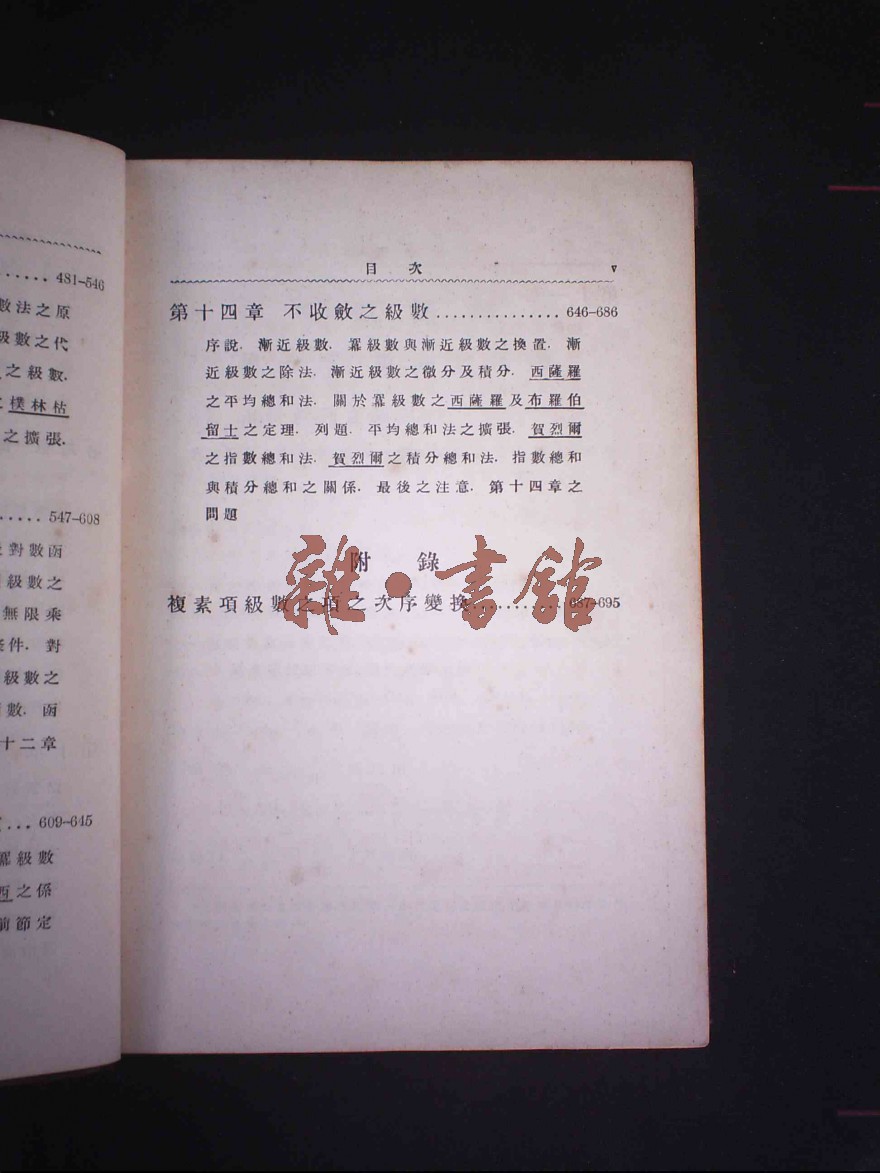 481-546
數法之原
級數之代
之級數.
樸林枯
之擴張.
547-608
對數函
級數之
無限乘
條件. 對
級數之
數. 函
十二章
609-645
冪級數
西之係
前節定
目 次 v
第十四章 不收斂之級數............... 646-686
序說. 漸近級數. 冪級數與漸近級數之換置. 漸
近級數之除法. 漸近級數之微分及積分. 西薩羅
之平均總和法. 關於冪級數之西薩羅及布羅伯
留士之定理. 列題. 平均總和法之擴張. 賀烈爾
之指數總和法. 賀烈爾之積分總和法. 指數總和
與積分總和之關係. 最後之注意. 第十四章之
問題
附 錄
複素項級數之項之次序變換............ 687-695
雜·書館